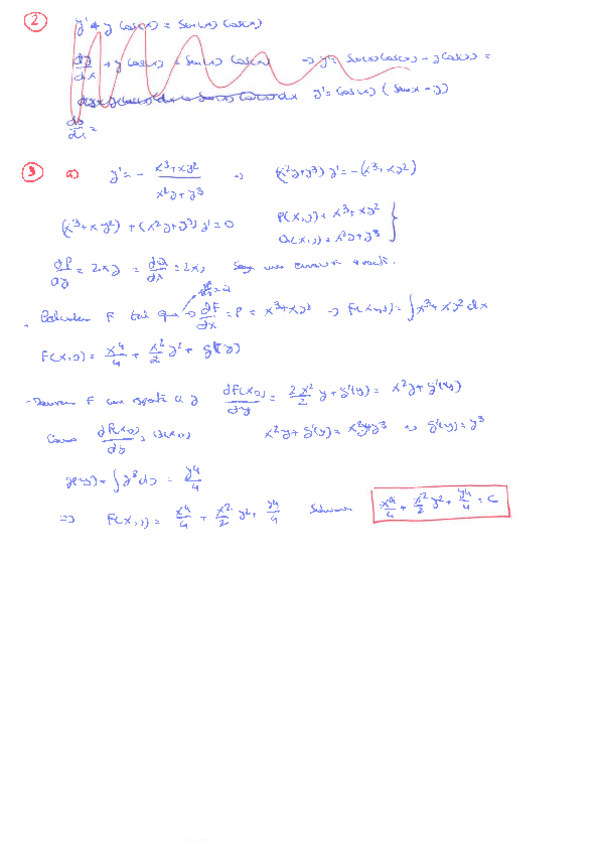 2
y' + y cos(x) = sen(x) cos(x)
dy/dx + y cos(x) = sen(x) cos(x) → y' = sen(x) cos(x) - y cos(x) =
y' = cos(x) (sen x - y)
dy/dx =
3 a) y' = - (x³+xy²)/(x²y+y³) → (x²y+y³) y' = -(x³+xy²)
(x³+xy²) + (x²y+y³) y' = 0
P(x,y) = x³+xy²
Q(x,y) = x²y+y³
dP/dy = 2xy = dQ/dx = 2xy exacta.
Calcular F tal que → dF/dx = P = x³+xy² → F(x,y) = ∫x³+xy² dx
F(x,y) = x⁴/4 + x²/2 y² + g(y)
- Derivar F con respecto a y dF(x,y)/dy = 2x²/2 y + g'(y) = x²y + g'(y)
Como dF(x,y)/dy = Q(x,y) x²y + g'(y) = x²y+y³ → g'(y) = y³
g(y) = ∫y³ dy = y⁴/4
⇒ F(x,y) = x⁴/4 + x²/2 y² + y⁴/4 Solución x⁴/4 + x²/2 y² + y⁴/4 = C